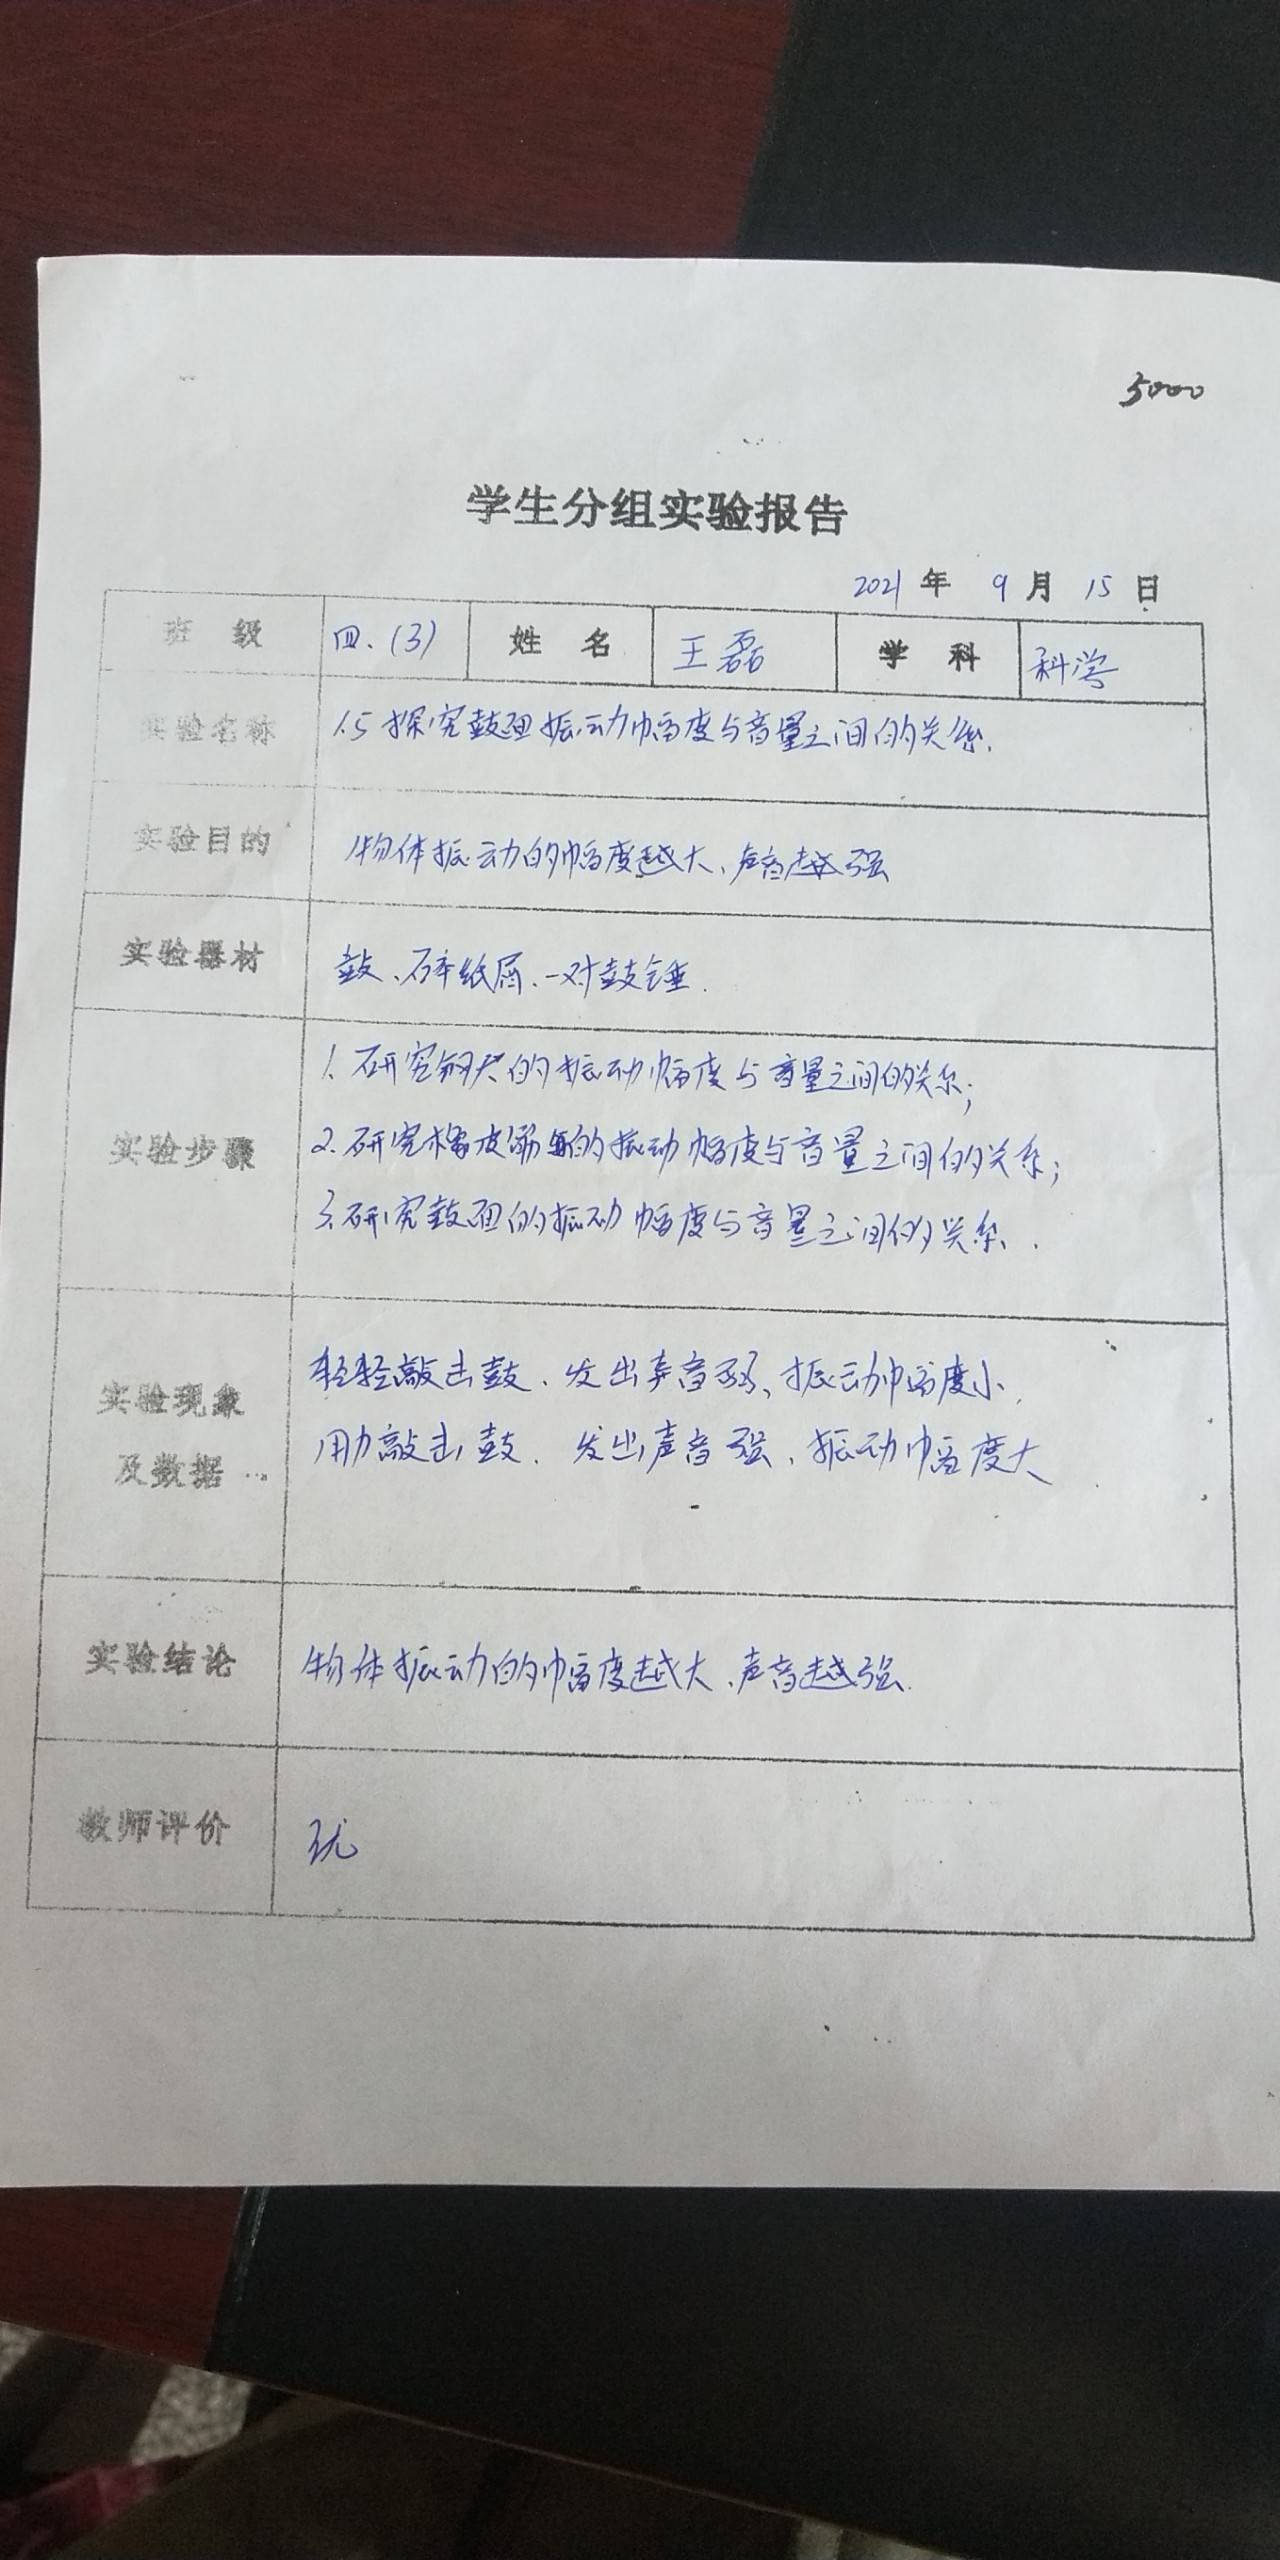 5000
学生分组实验报告
2021 年 9 月 15 日
班 级 四.(3) 姓 名 王磊 学 科 科学
实验名称 1.5 探究鼓面振动幅度与音量之间的关系.
实验目的 物体振动的幅度越大、声音越强
实验器材 鼓、碎纸屑、一对鼓锤.
1. 研究钢尺的振动幅度与音量之间的关系;
实验步骤 2. 研究橡皮筋的振动幅度与音量之间的关系;
3. 研究鼓面的振动幅度与音量之间的关系.
实验现象 轻轻敲击鼓、发出声音弱、振动幅度小.
及数据 用力敲击鼓. 发出声音强、振动幅度大
实验结论 物体振动的幅度越大、声音越强.
教师评价 优